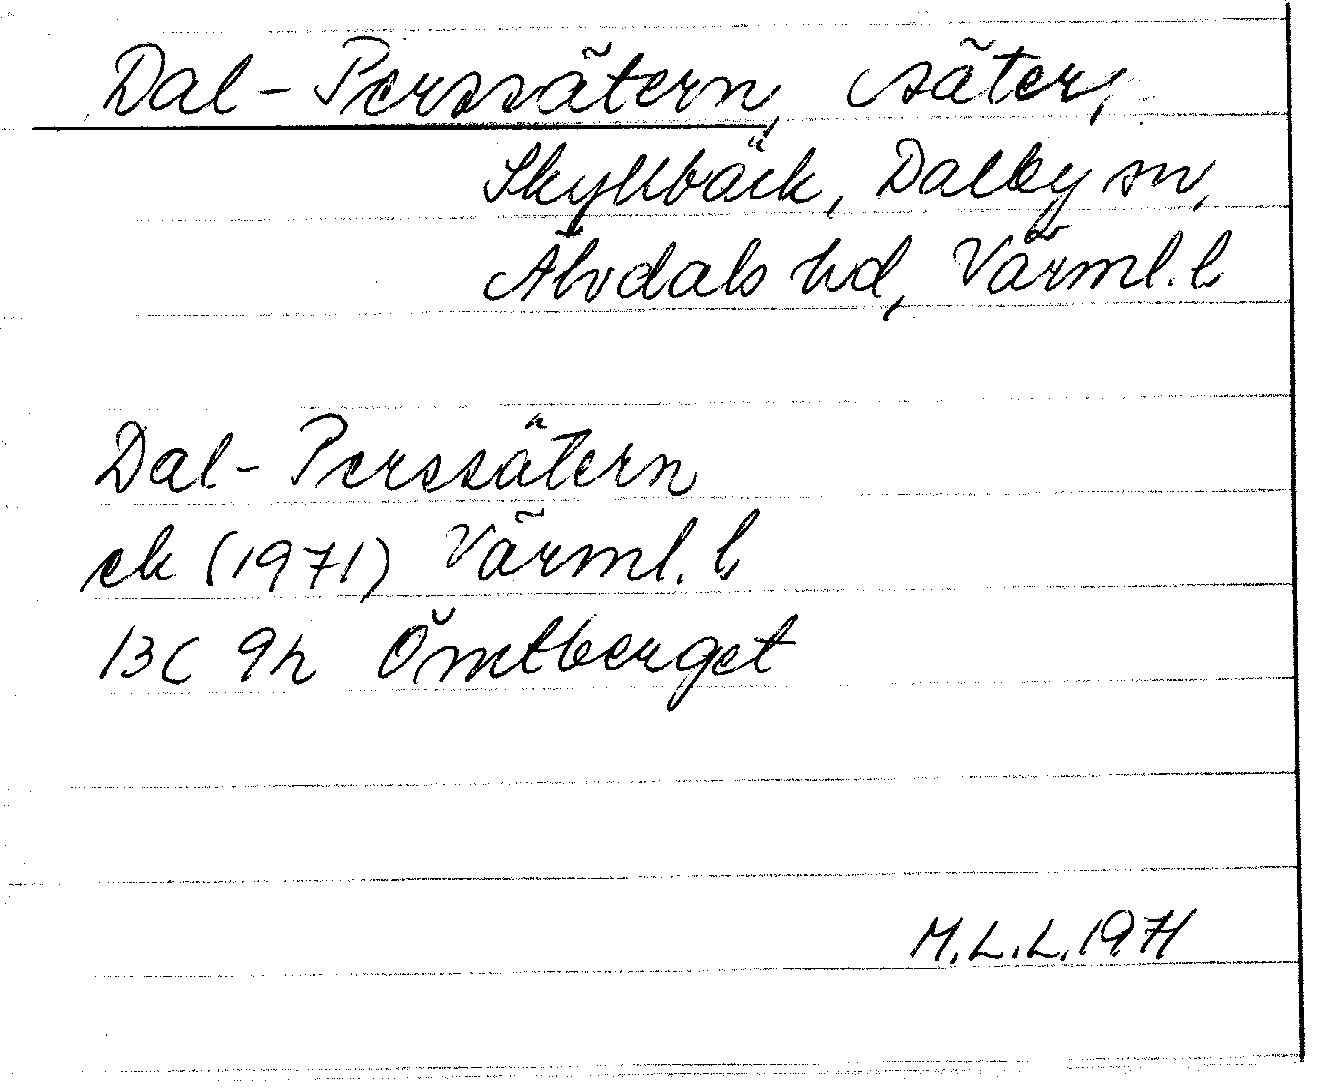 Dal-Perssätern, säter,
Skyllbäck, Dalby sn,
Älvdals hd, Värml. l
Dal-Perssätern
ek (1971) Värml. l
13C 9h Ömtberget
M.L.L. 1971